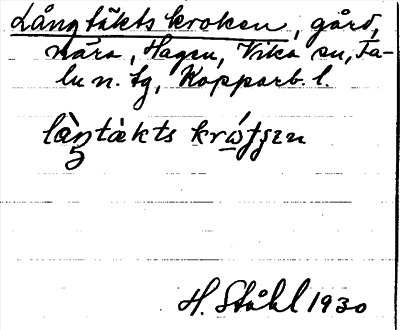 Långtäkts kroken, gård,
nära, Hagen, Vika sn, Fa-
lu n. tg, Kopparb. l.
làŋtàkts krẃtʃɪn
H. Ståhl 1930